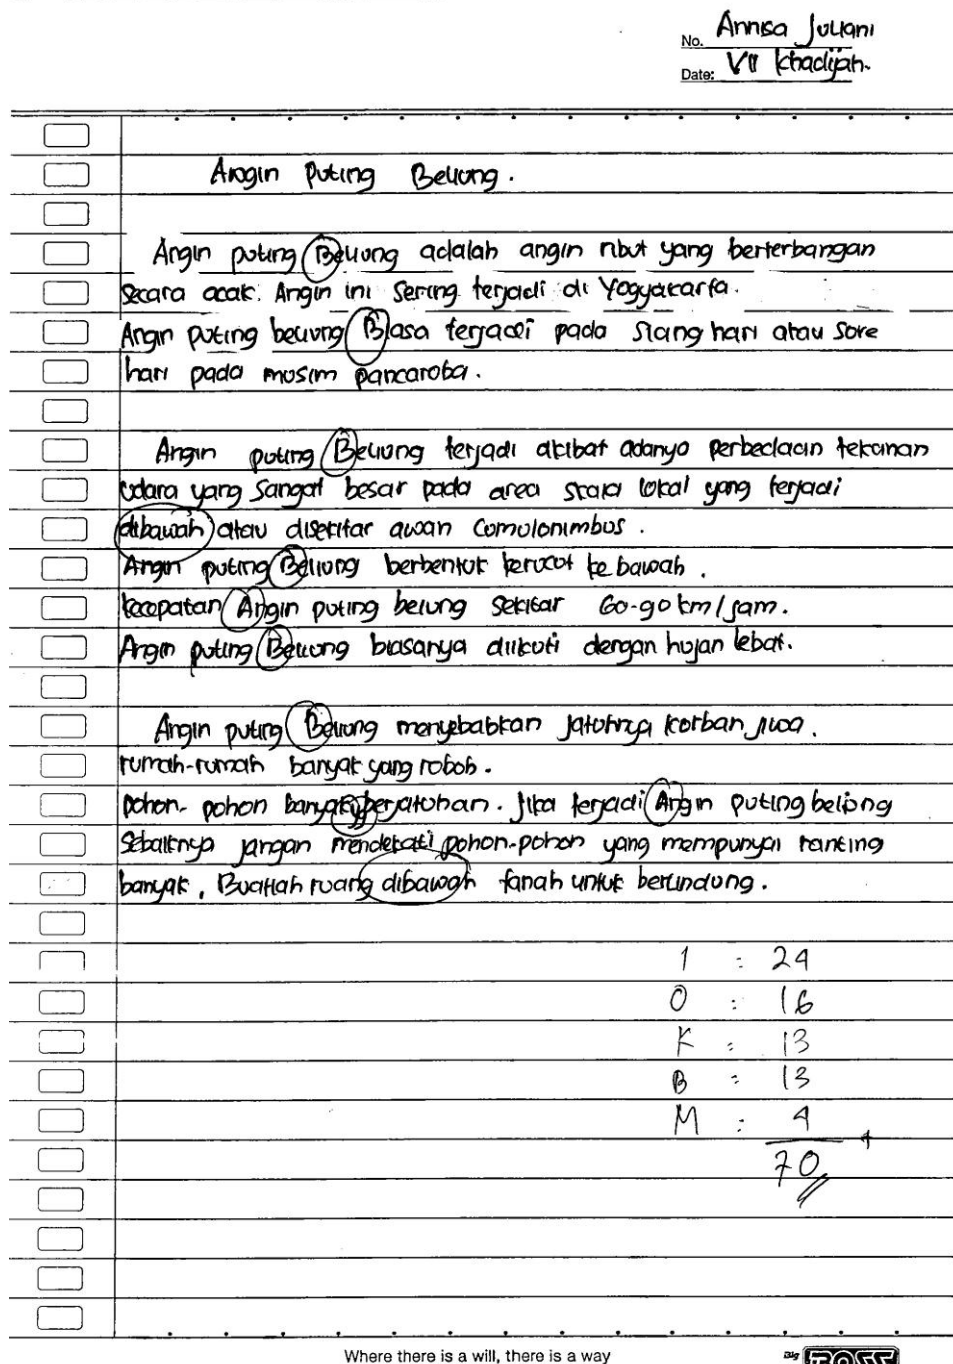 No. Annisa Juliani
Date: VII Khadijah.
Angin Puting Beliung.
Angin puting Beliung adalah angin ribut yang berterbangan
secara acak. Angin ini sering terjadi di Yogyakarta.
Angin puting beliung Biasa terjadi pada siang hari atau sore
hari pada musim pancaroba.
Angin puting Beliung terjadi akibat adanya perbedaan tekanan
udara yang sangat besar pada area skala lokal yang terjadi
dibawah atau disekitar awan Comulonimbus.
Angin puting Beliung berbentuk kerucut ke bawah.
kecepatan Angin puting belung sekitar 60-90 km/jam.
Angin puting Beliung biasanya diikuti dengan hujan lebat.
Angin puting Beliung menyebabkan jatuhnya korban jiwa.
rumah-rumah banyak yang roboh.
pohon-pohon banyak berjatuhan. Jika terjadi Angin puting beliong
sebaiknya jangan mendekati pohon-pohon yang mempunyai ranting
banyak, Buatlah ruang dibawah tanah untuk berlindung.
I : 24
O : 16
K : 13
B : 13
M : 4 +
70
Where there is a will, there is a way
Big BOSS